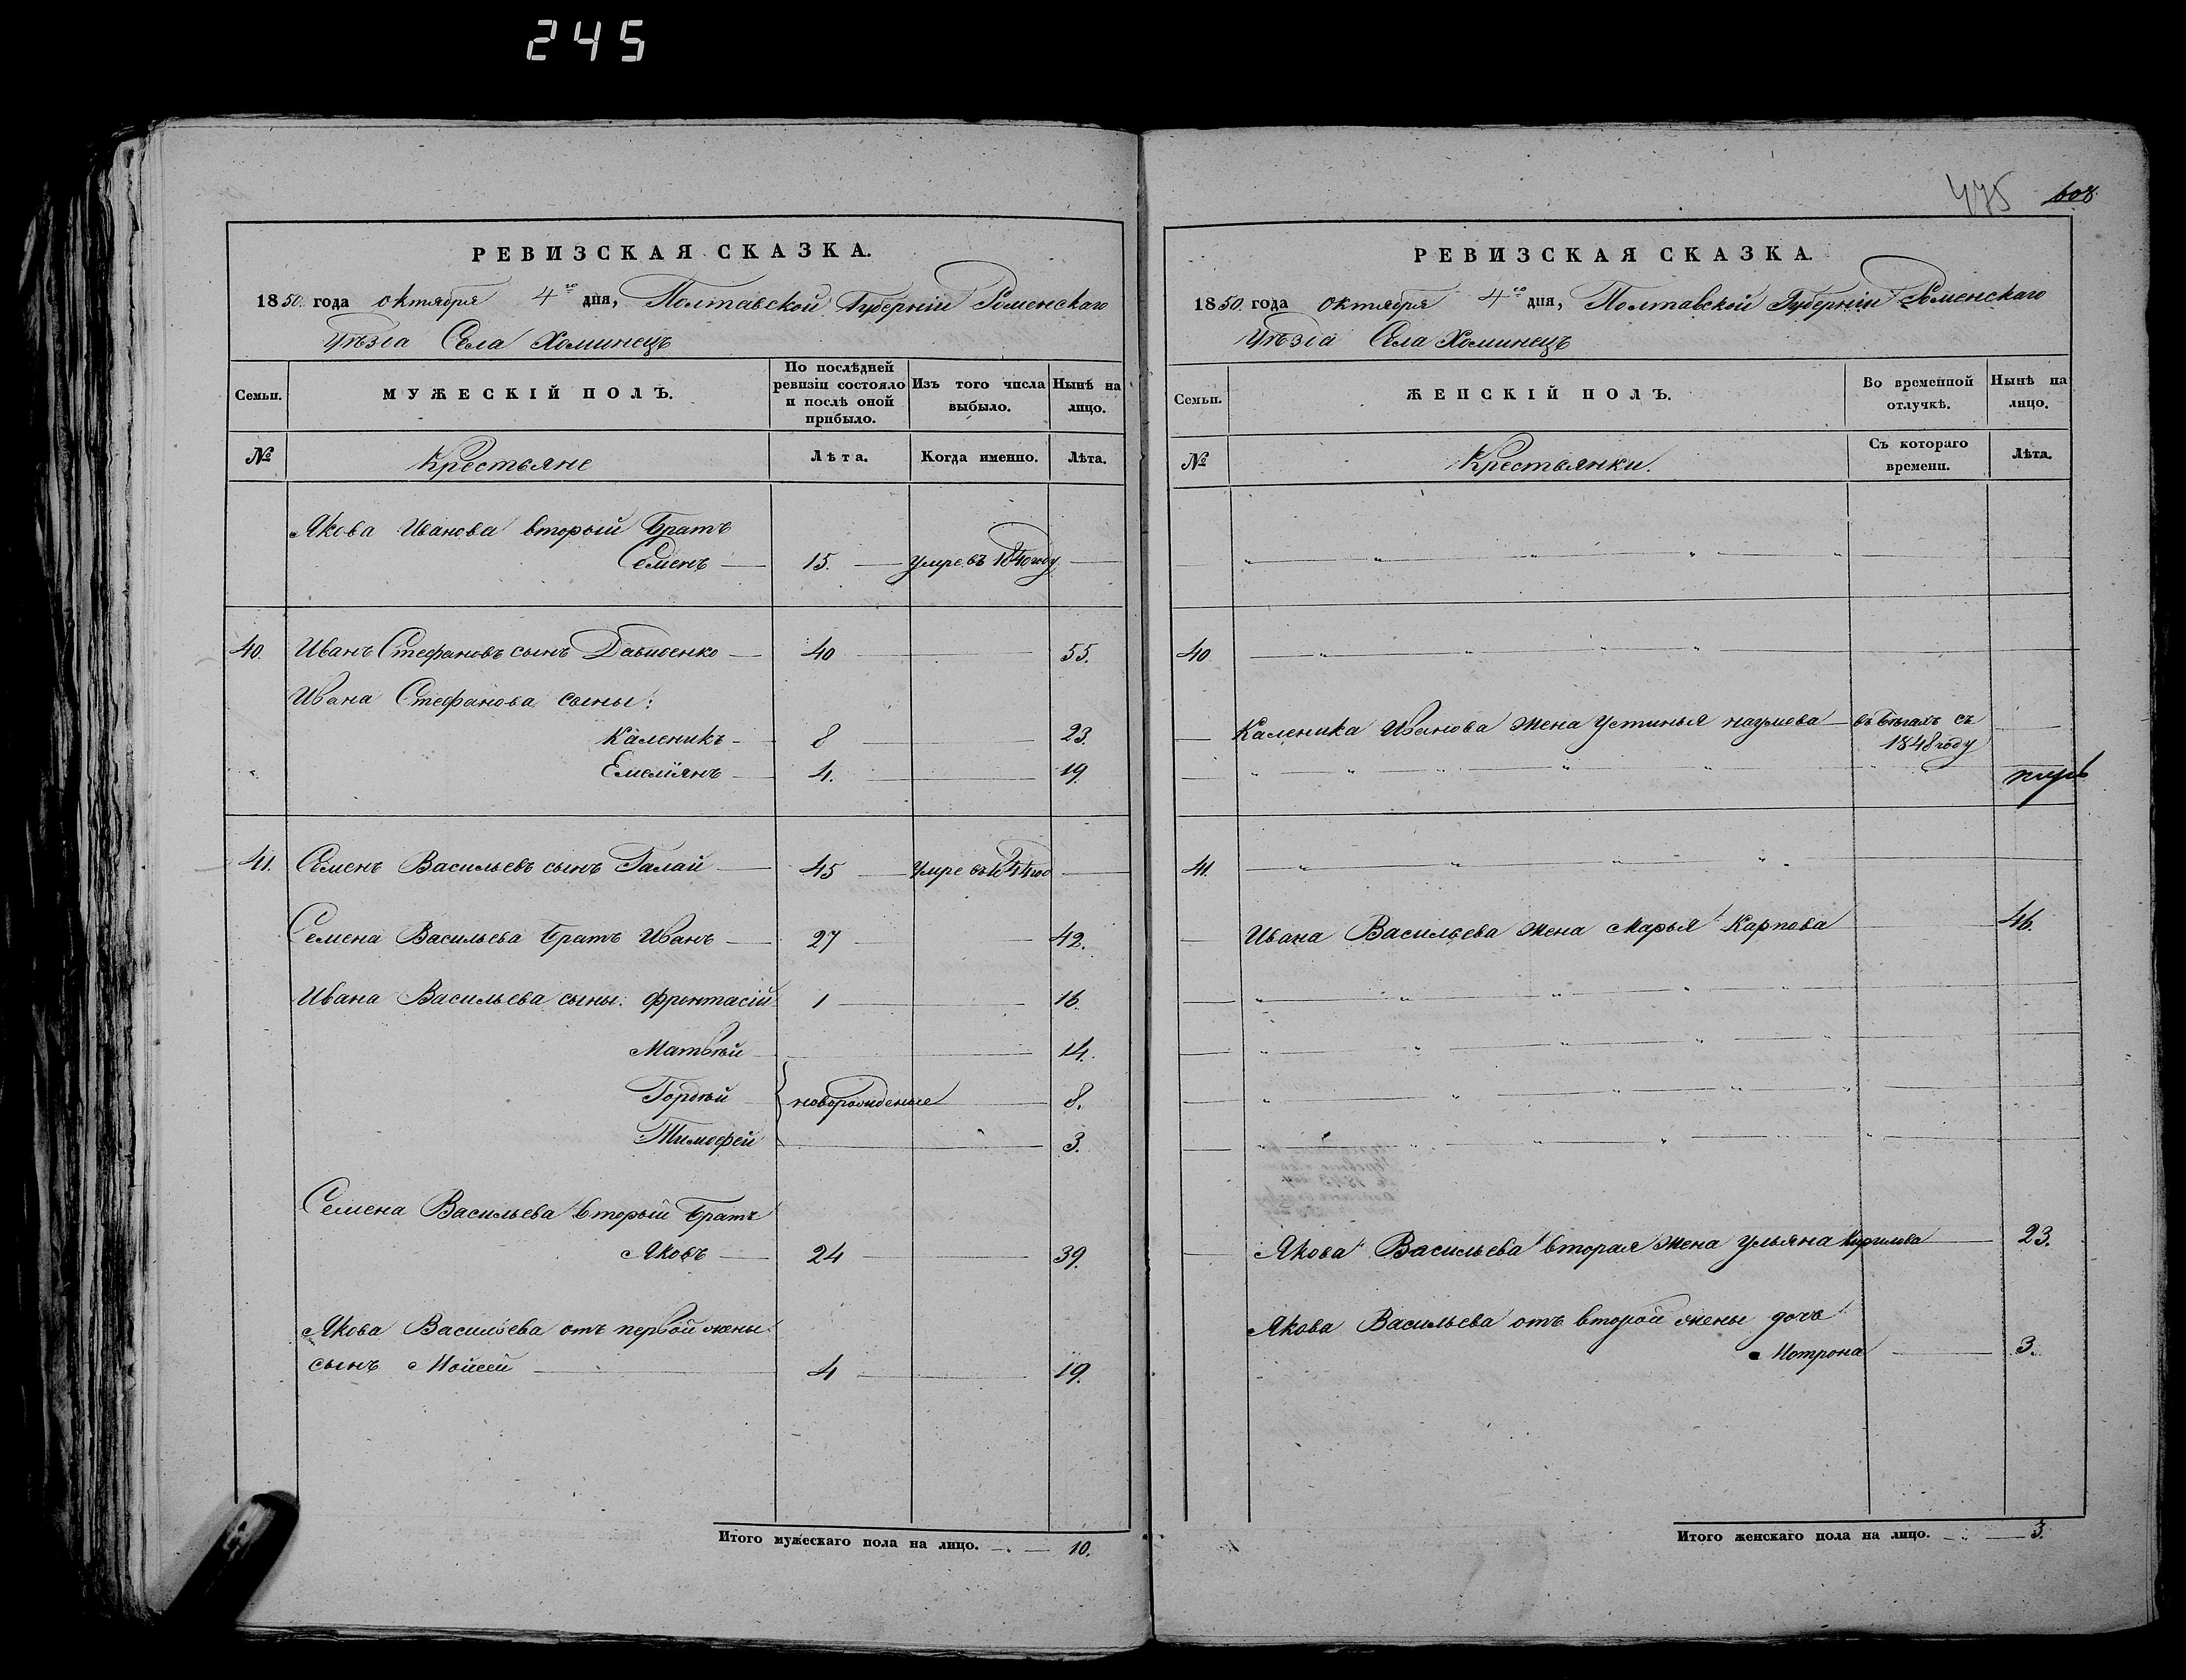 245
РЕВИЗСКАЯ СКАЗКА.
1850 года октября 4го дня, Полтавской Губерніи Роменскаго
Уѣзда Села Хоминецъ
Семьи.
МУЖЕСКІЙ ПОЛЪ.
По послѣдней ревизіи состояло и послѣ оной прибыло.
Изъ того числа выбыло.
Нынѣ на лицо.
№
Крестьяне
Лѣта.
Когда именно.
Лѣта.
Якова Иванова вторый братъ
Семенъ 15. умре въ 1840 году
40. Иванъ Стефановъ сынъ Давиденко 40 55.
Ивана Стефанова сыны:
Каленикъ 8 23.
Емеліянъ 4. 19.
41. Семенъ Васильевъ сынъ Галай 45 Умре въ 1844 год
Семена Васильева братъ Иванъ 27 42.
Ивана Васильева сыны: 1 16
Матвѣй 14.
Гордѣй новорожденые 8.
Тимофей 3.
Семена Васильева вторый братъ
Яковъ 24 39.
Якова Васильева отъ первой жены
сынъ Мойсей 4 19.
Итого мужескаго пола на лицо. 10.
475 608
РЕВИЗСКАЯ СКАЗКА.
1850 года Октября 4го дня, Полтавской Губерніи Роменскаго
Уѣзда Села Хоминецъ
Семьи.
ЖЕНСКІЙ ПОЛЪ.
Во временной отлучкѣ.
Нынѣ на лицо.
№
Крестьянки.
Съ котораго времени.
Лѣта.
40
Каленика Иванова жена Устинья Наумова въ бѣгахъ съ
1848 году
41.
Ивана Васильева жена Марья Карпова 46.
Якова Васильева вторая жена Ульяна Кирилова 23.
Якова Васильева отъ второй жены дочь
Мотрона 3.
Итого женскаго пола на лицо. 3.